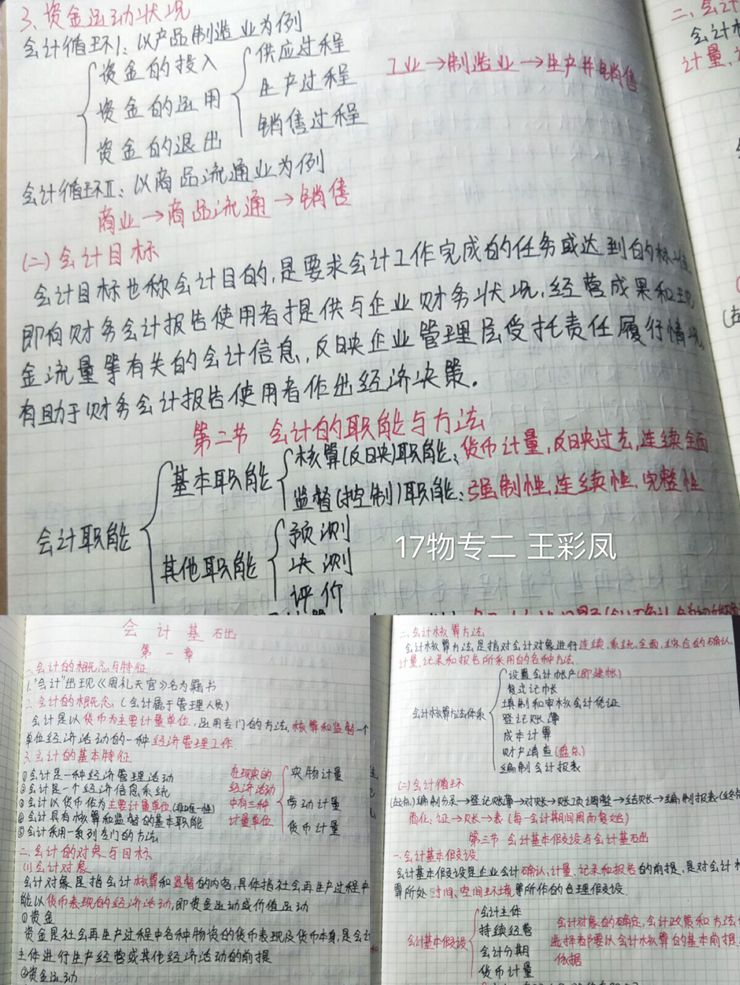 3、资金运动状况
会计循环Ⅰ：以产品制造业为例
资金的投入
资金的运用
资金的退出
供应过程
生产过程
销售过程
工业→制造业→生产并销售
会计循环Ⅱ：以商品流通业为例
商业→商品流通→销售
(二)会计目标
会计目标也称会计目的,是要求会计工作完成的任务或达到的标准
即向财务会计报告使用者提供与企业财务状况,经营成果和现
金流量等有关的会计信息,反映企业管理层受托责任履行情况
有助于财务会计报告使用者作出经济决策.
第二节 会计的职能与方法
会计职能
基本职能
核算(反映)职能:货币计量,反映过去,连续全面
监督(控制)职能:强制性,连续性,完整性
其他职能
预测
决测
评价
17物专二 王彩凤
会计基础
第一章
一.会计的概念与特征
1."会计"出现《周礼天官》名为籍书
2.会计的概念.(会计属于管理人员)
会计是以货币为主要计量单位,运用专门的方法,核算和监督一个
单位经济活动的一种经济管理工作
3.会计的基本特征
①会计是一种经济管理活动
②会计是一个经济信息系统
③会计以货币作为主要计量单位(非唯一性)
④会计具有核算和监督的基本职能
⑤会计采用一系列专门的方法
在现实的
经济活动
中有三种
计量单位
实物计量
劳动计量
货币计量
二.会计的对象与目标
(1)会计对象
会计对象是指会计核算和监督的内容,具体指社会再生产过程中
能以货币表现的经济活动,即资金运动或价值运动
①资金
资金是社会再生产过程中各种物资的货币表现及货币本身,是会计
主体进行生产经营或其他经济活动的前提
②资金运动
二.会计核算方法
会计核算方法是指对会计对象进行连续,系统,全面,综合的确认
计量,记录和报告所采用的各种方法
会计核算方法体系
设置会计帐户(即建帐)
复式记帐
填制和审核会计凭证
登记账簿
成本计算
财产清查(盘点)
编制会计报表
(二)会计循环
编制分录→登记账簿→对账→账项调整→结账→编制报表
简化:证→账→表(每一会计期间周而复始)
第三节 会计基本假设与会计基础
一.会计基本假设
会计基本假设是企业会计确认、计量、记录和报告的前提,是对会计核
算所处时间、空间环境等所作的合理假设
会计基本假设
会计主体
持续经营
会计分期
货币计量
会计对象的确定,会计政策和方法
选择都要以会计核算的基本前提
依据